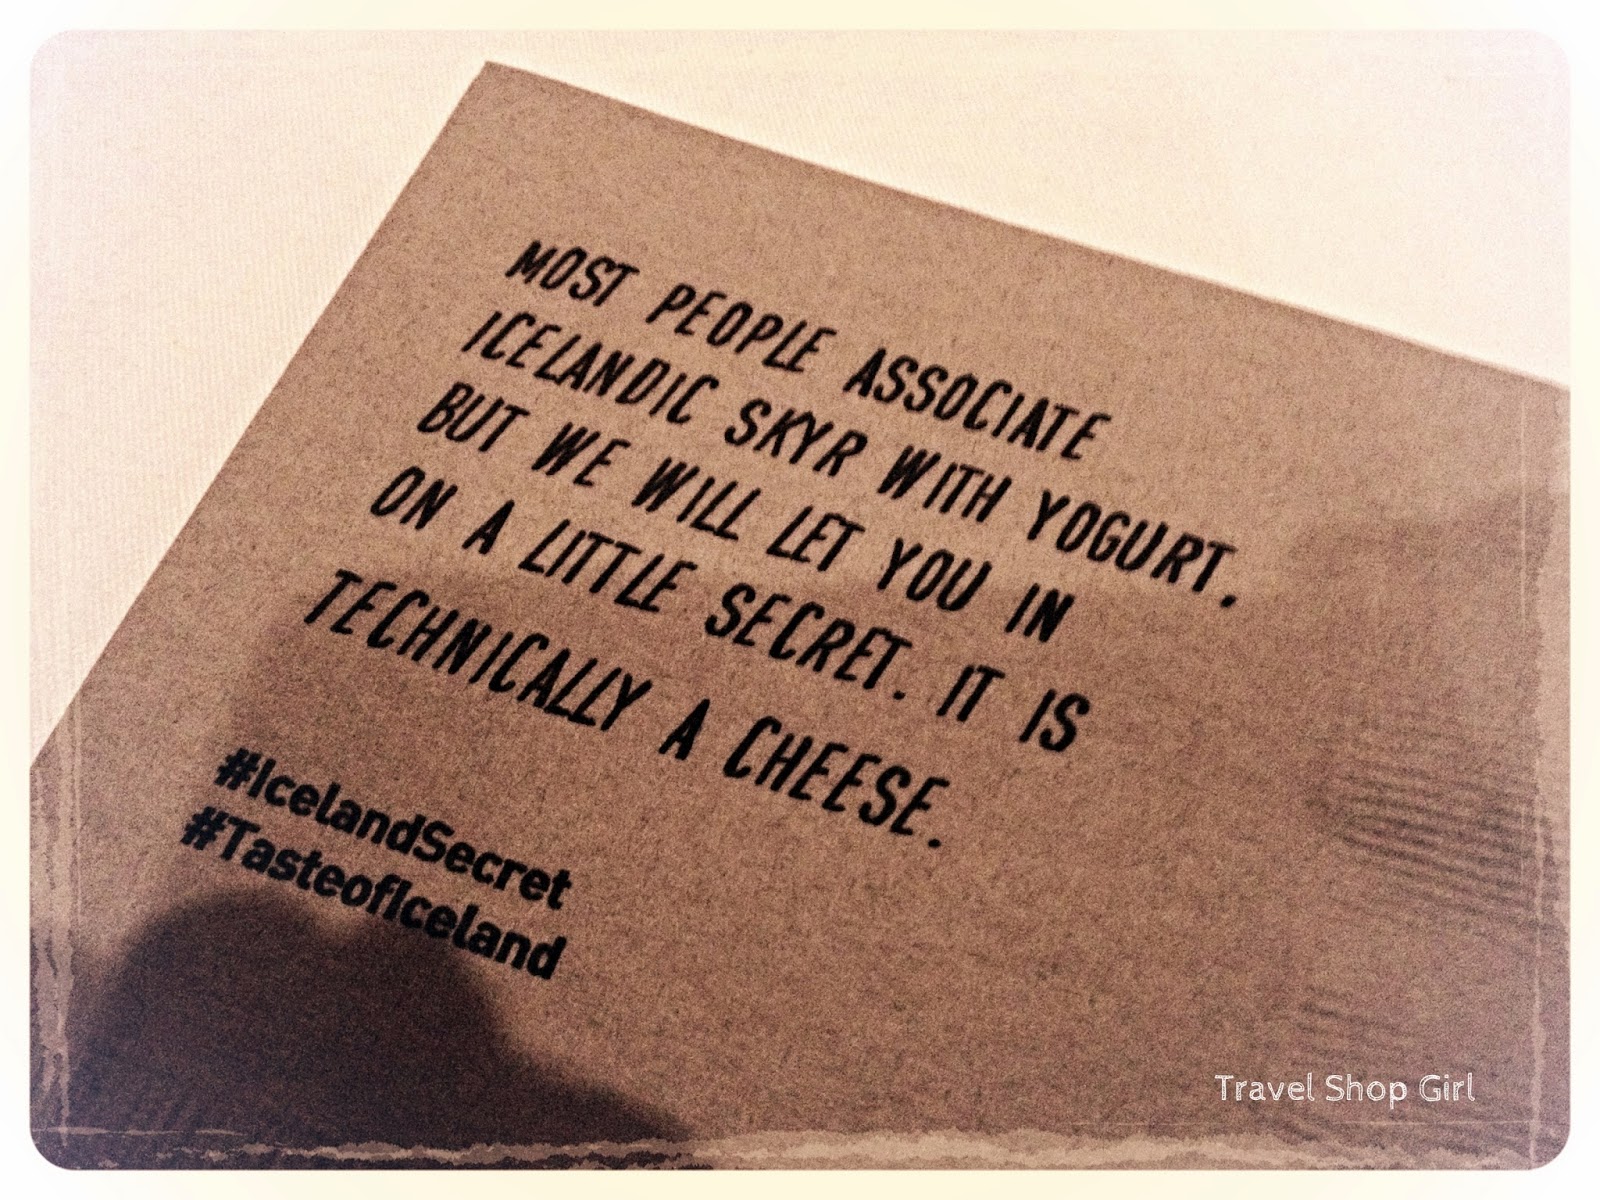 MOST PEOPLE ASSOCIATE
ICELANDIC SKYR WITH YOGURT.
BUT WE WILL LET YOU IN
ON A LITTLE SECRET. IT IS
TECHNICALLY A CHEESE.
#IcelandSecret
#TasteofIceland
Travel Shop Girl